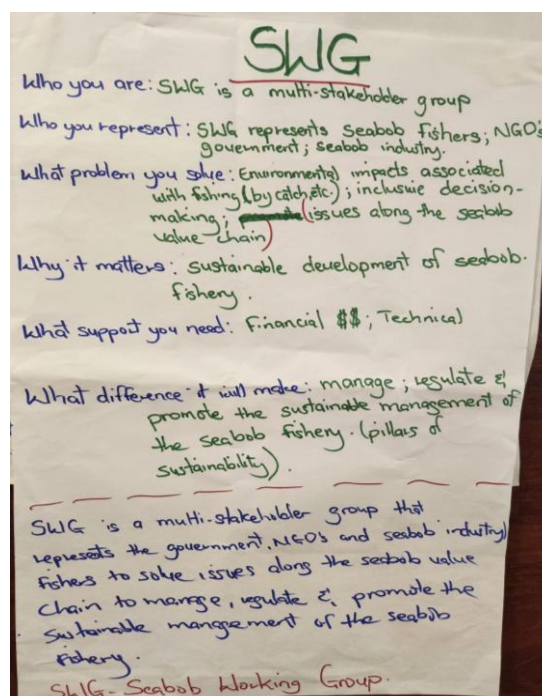 SWG
Who you are: SWG is a multi-stakeholder group
Who you represent: SWG represents Seabob fishers; NGO's
government; seabob industry.
What problem you solve: Environmental impacts associated
with fishing (by catch, etc.); inclusive decision-
making; (issues along the seabob
value chain)
Why it matters: sustainable development of seabob
fishery.
What support you need: Financial $$; Technical
What difference it will make: manage; regulate &
promote the sustainable management of
the seabob fishery. (pillars of
sustainability).
SWG is a multi-stakeholder group that
represents the government, NGO's and seabob industry
fishers to solve issues along the seabob value
chain to manage, regulate & promote the
sustainable management of the seabob
fishery.
SWG - Seabob Working Group.